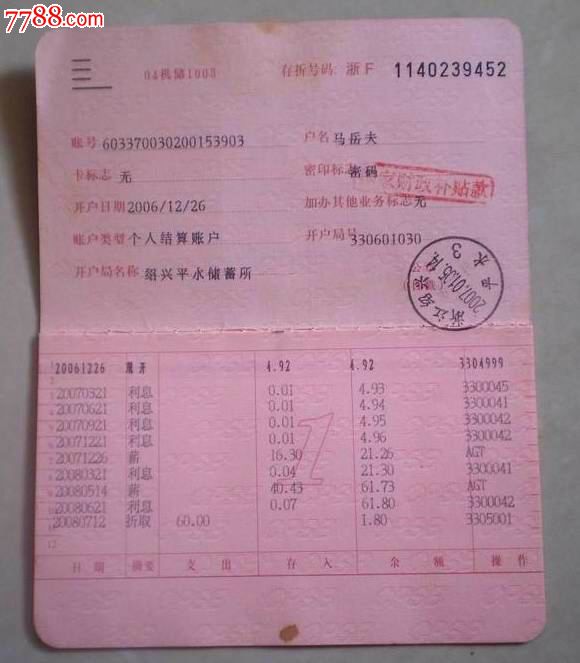 7788.com
04机储1003 存折号码 浙F 1140239452
账号 603370030200153903 户名 马岳夫
卡标志 无 密印标志 密码
财政补贴款
开户日期 2006/12/26 加办其他业务标志 无
账户类型 个人结算账户 开户局号 330601030
开户局名称 绍兴平水储蓄所
浙江绍兴 2007.01.05.14 平水 3
20061226 现开 4.92 4.92 3304999
20070321 利息 0.01 4.93 3300045
20070621 利息 0.01 4.94 3300041
20070921 利息 0.01 4.95 3300042
20071221 利息 0.01 4.96 3300042
20071226 薪 16.30 21.26 AGT
20080321 利息 0.04 21.30 3300041
20080514 薪 40.43 61.73 AGT
20080621 利息 0.07 61.80 3300042
20080712 折取 60.00 1.80 3305001
日期 摘要 支出 存入 余额 操作
1